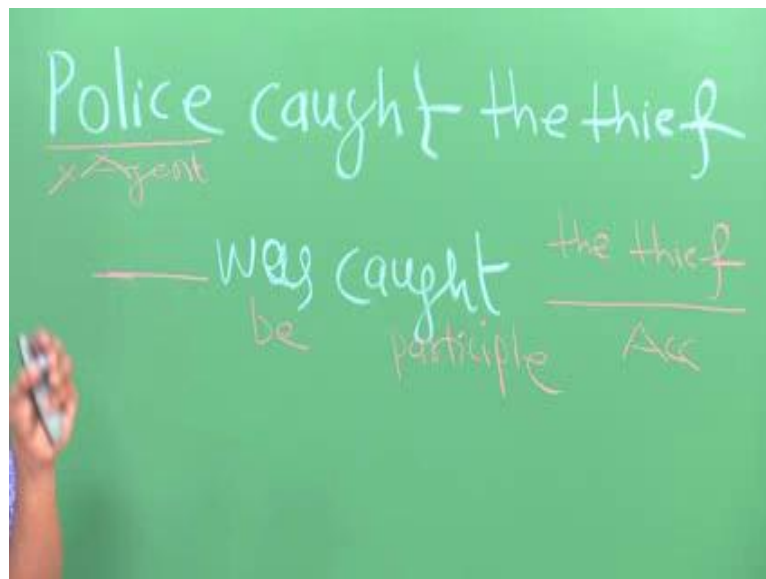 Police caught the thief
x Agent
___ was caught the thief
be participle Acc